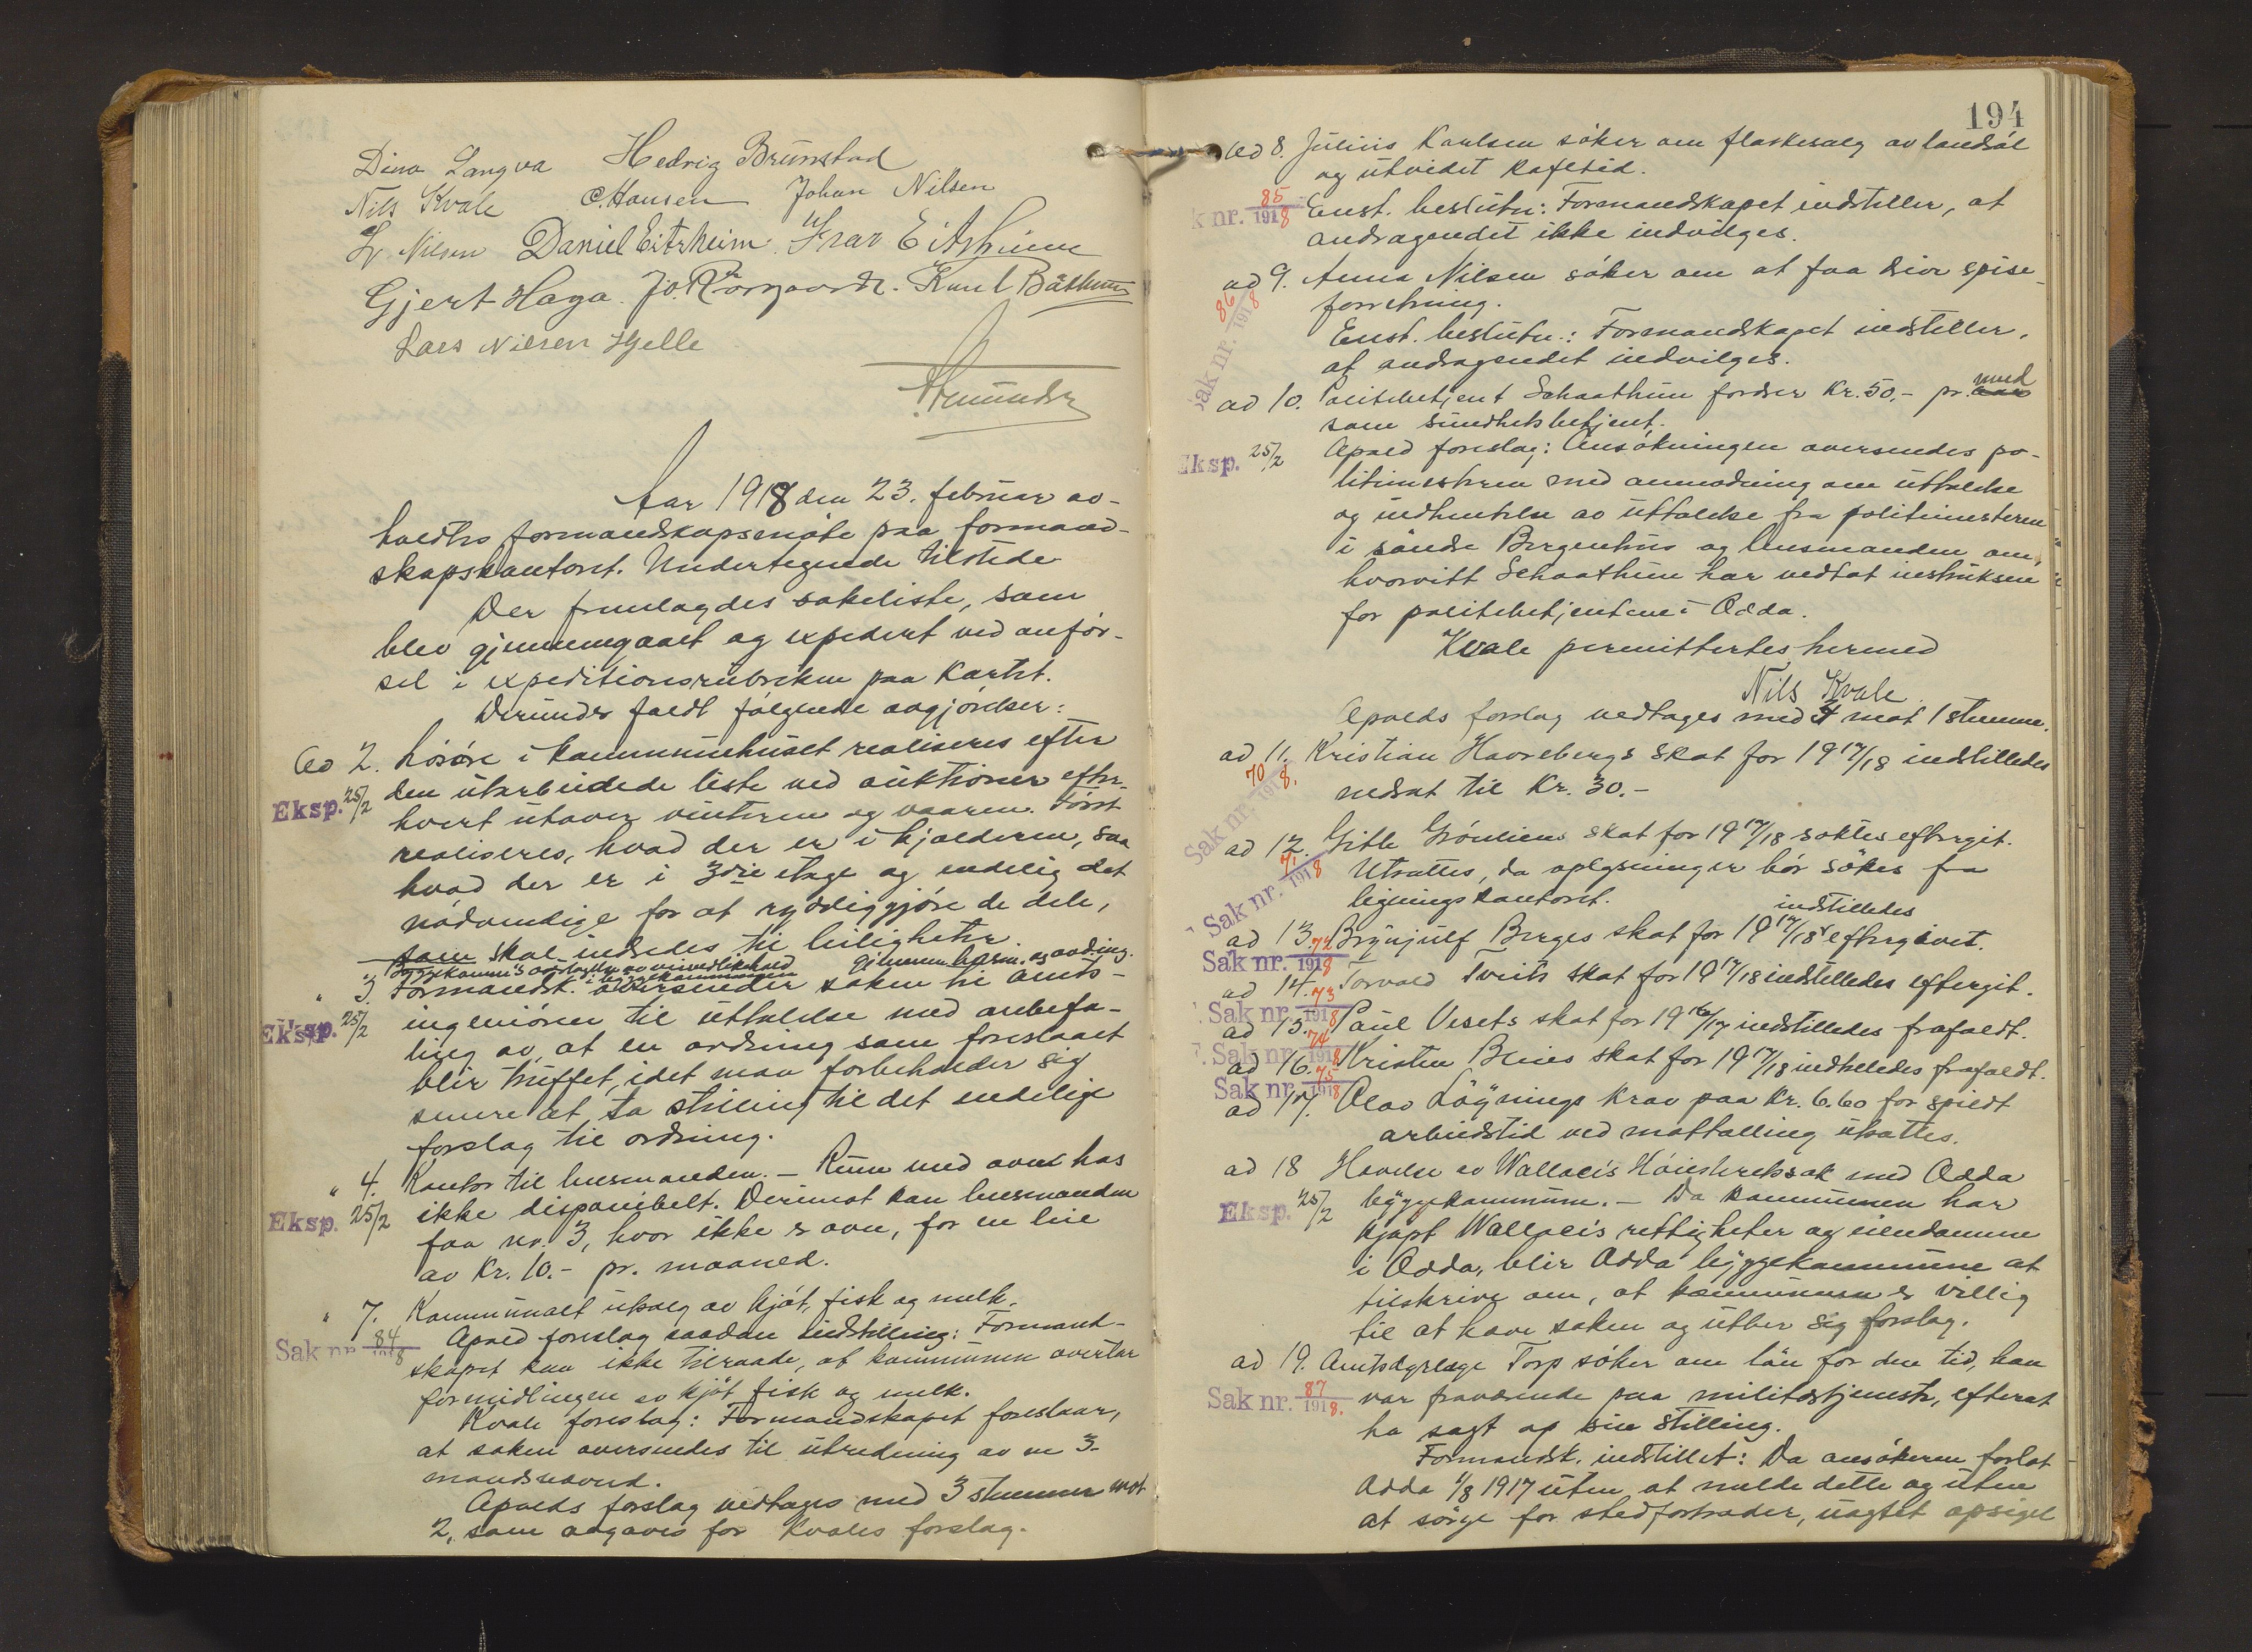 Dina Langva Hedvig Brunstad
Nils Kvale C. Hansen Johan Nilsen
L. Nilsen Daniel Eitrheim Ivar Eitrheim
Gjert Haga. Jo. Raagaard. Knut
Lars Nilsen Hjelle
Aar 1918 den 23. februar av-
holdtes formandskapsmøte paa formand-
skapskontoret. Undertegnede tilstede
Der fremlagdes sakeliste, som
blev gjennemgaaet og expedert ved anför-
sel i expeditionsrubrikken paa kartet.
Derunder faldt følgende avgjörelser:
Ad 2. Lösöre i kommunehuset realiseres efter
Eksp. 25/2 den utarbeidede liste ved auktioner efter-
hvert utover vinteren og vaaren. Först
realiseres, hvad der er i kjælderen, saa
hvad der er i 3die etage og endelig det
nödvendige for at ryddiggjöre de dele,
som skal indredes til leiligheter.
Byggekommunens overtagelse av veivedlikehold i byggekommunen
" 3. Formandsk. oversender saken til amts-
Eksp. 25/2 ingeniören til uttalelse med anbefa-
ling av, at en ordning som foreslaaet
blir truffet, idet man forbeholder sig
senere at ta stilling til det endelige
forslag til ordning.
" 4. Kontor til lensmanden. - Rum med ovn has
Eksp. 25/2 ikke disponibelt. Derimot kan lensmanden
faa nr. 3, hvor ikke er ovn, for en leie
av Kr. 10.- pr. maaned.
" 7. Kommunalt utsalg av kjöt, fisk og melk.
Sak nr. 84/1918 Apold foreslog saadan indstilling: Formand-
skapet kan ikke tilraade, at kommunen overtar
formidlingen av kjöt, fisk og melk.
Kvale foreslog: Formandskapet foreslaar,
at saken oversendes til utredning av en 3-
mandsnævnd.
Apolds forslag vedtages med 3 stemmer mot
2, som avgaves for Kvales forslag.
194
ad 8. Julius Karlsen söker om flaskesalg av landsöl
og utvidet kafetid.
k nr. 85/1918 Enst. beslutn: Formandskapet indstiller, at
andragendet ikke indvilges.
ad 9. Anna Nilsen söker om at faa drive spise-
Sak nr. 86/1918 forretning.
Enst. beslutn.: Formandskapet indstiller,
at andragendet indvilges.
ad 10. Politibetjent Schaathun fordrer Kr. 50.- pr. aar mnd
som sundhetsbetjent.
Eksp. 25/2 Apold foreslog: Ansökningen oversendes po-
litimesteren med anmodning om uttalelse
og indhentelse av uttalelse fra politimesteren
i söndre Bergenhus og lensmanden om,
hvorvitt Schaathun har vedtat instruksen
for politibetjentene i Odda.
Kvale permittertes hermed
Nils Kvale
Apolds forslag vedtages med 4 mot 1 stemme.
ad 11. Kristian Havrebergs skat for 1917/18 indstilledes
Sak nr. 70/1918. nedsat til Kr. 30.-
ad 12. Gitle Grönliens skat for 1917/18 söktes eftergit.
Sak nr. 71/1918 Utsattes, da oplysninger bör sökes fra
ligningskontoret.
indstilledes
ad 13. Brynjulf Berges skat for 1917/18 eftergivet.
Sak nr. 72/1918
ad 14. Torvald Tveits skat for 1917/18 indstilledes eftergit.
Sak nr. 73/1918
ad 15. Paul Vesets skat for 1916/17 indstilledes frafaldt.
Sak nr. 74/1918
ad 16. Kristen skat for 1917/18 indstilledes frafaldt.
Sak nr. 75/1918
ad 17. Olav Löynings krav paa Kr. 6.60 for spildt
arbeidstid ved mattælling utsattes.
ad 18 Hævelse av Wallaceis Höiesteretssak med Odda
Eksp. 25/2 byggekommune. - Da kommunen har
kjöpt Wallaceis rettigheter og eiendomme
i Odda, blir Odda byggekommune at
tilskrive om, at kommunen er villig
til at hæve saken og utber sig forslag.
ad 19. Amtsdyrlæge Torp söker om lön for den tid, han
Sak nr. 87/1918. var fraværende paa militærtjeneste, efterat
ha sagt op sin stilling.
Formandsk. indstillet: Da ansökeren forlot
Odda 1/8 1917 uten at melde dette og uten
at sörge for stedfortræder, uagtet opsigel